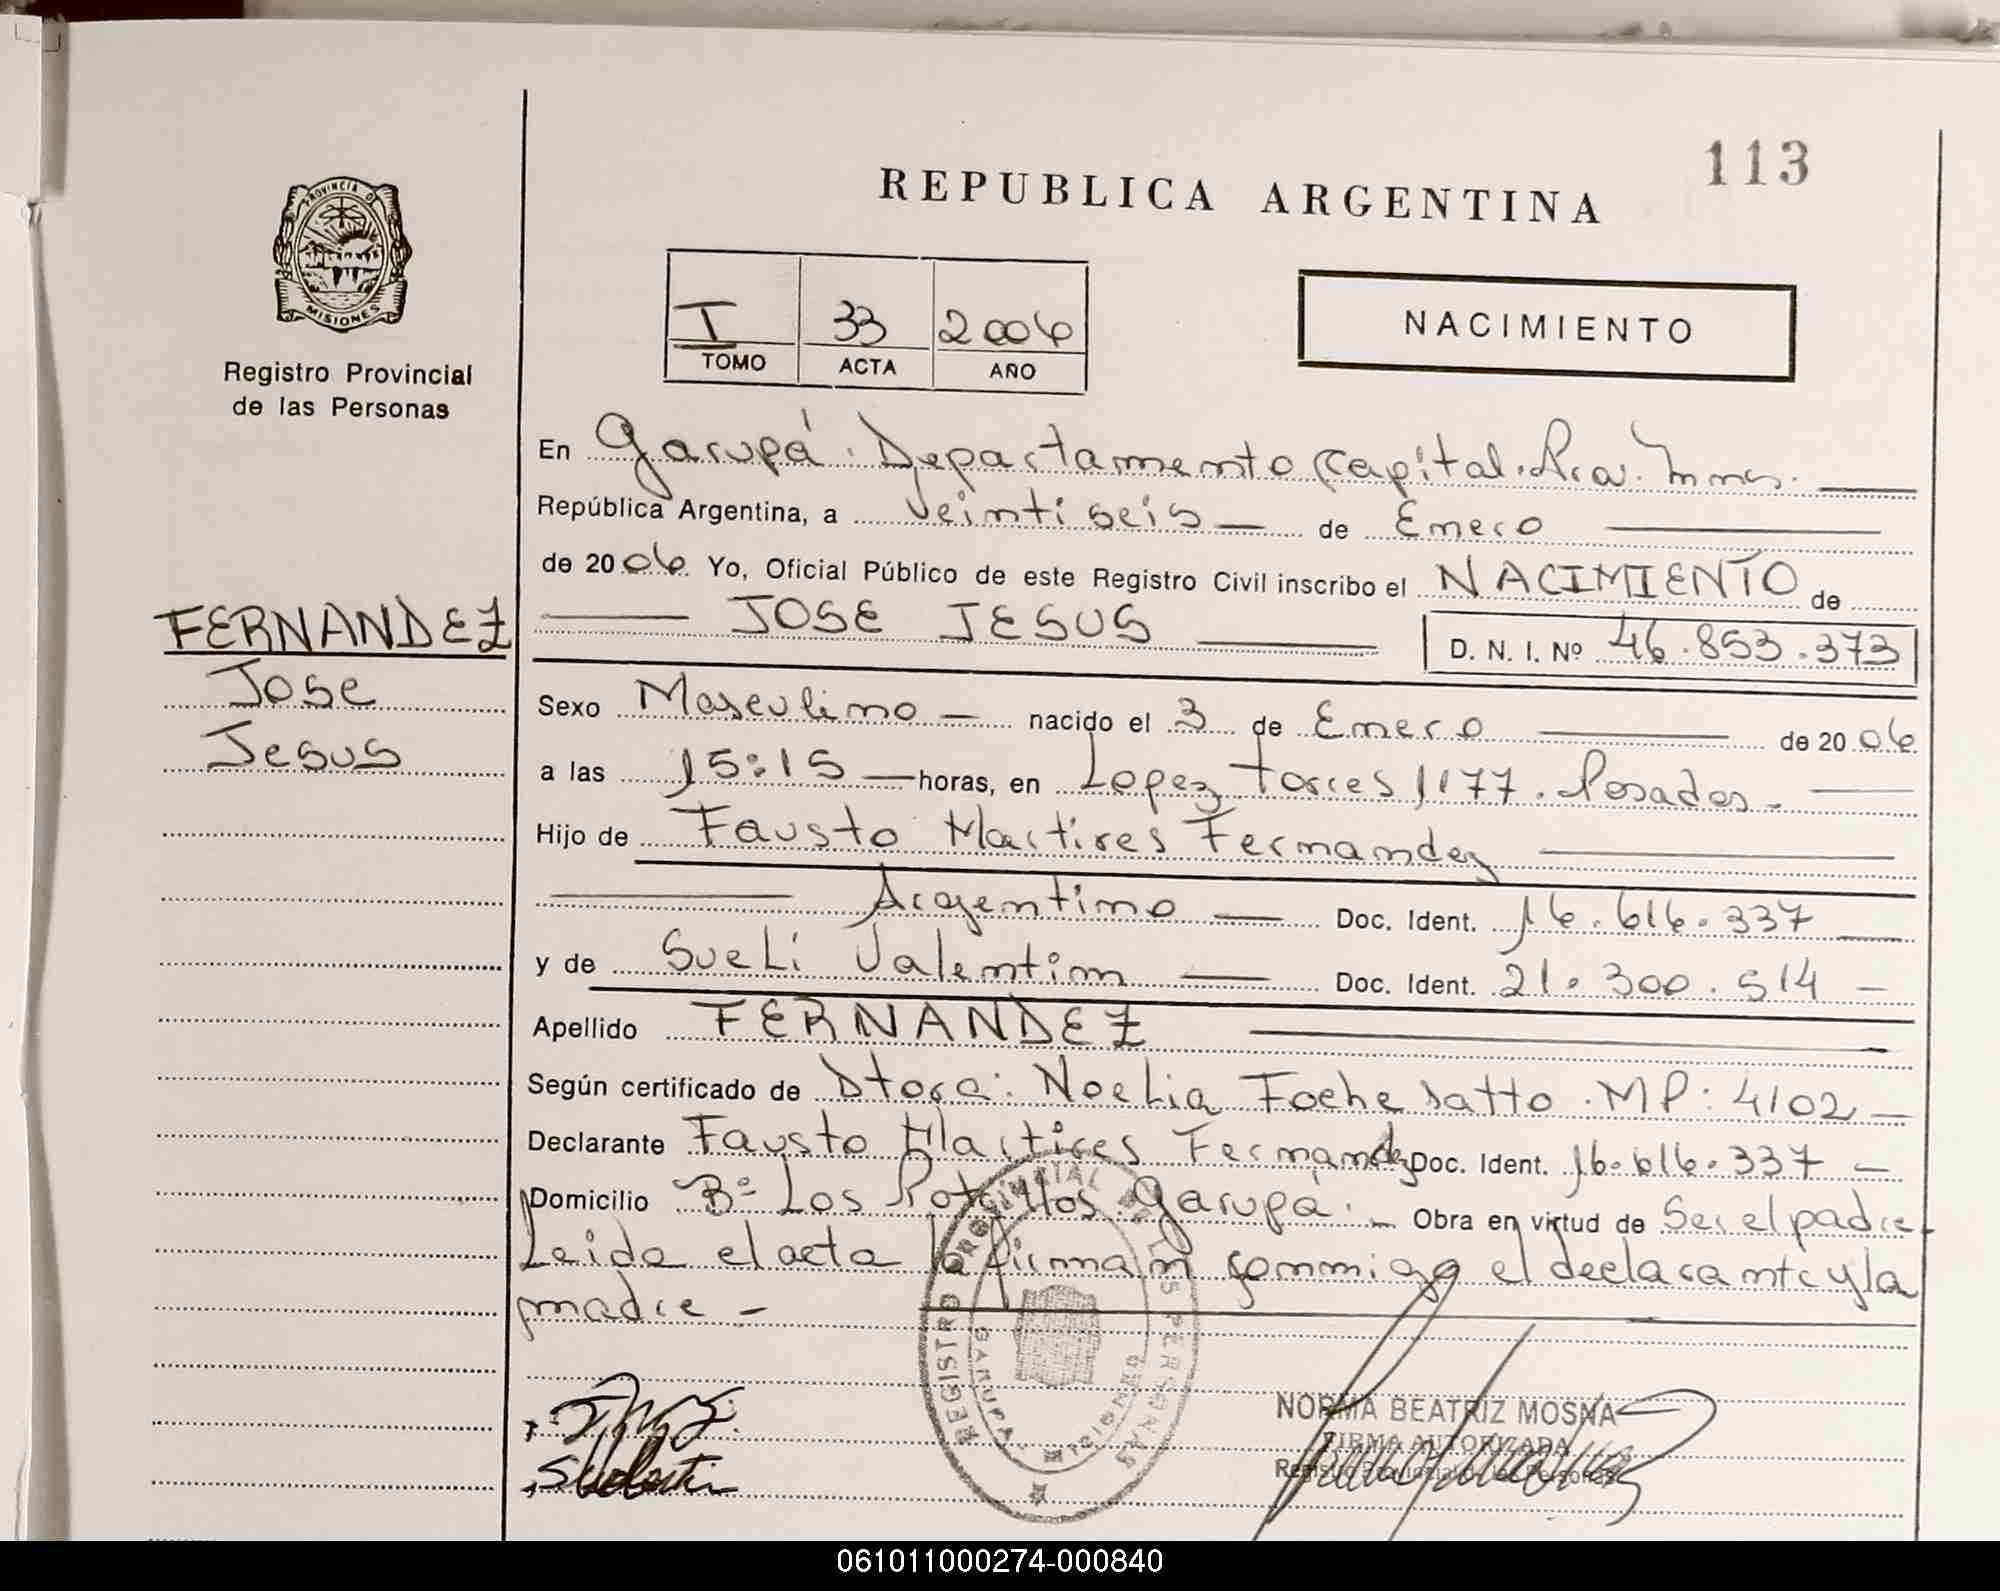 113
REPUBLICA ARGENTINA
PROVINCIA D
MISIONES
Registro Provincial
de las Personas
I 33 2006
TOMO ACTA AÑO
NACIMIENTO
En Garupá. Departamento Capital. Pcia. Mnes.
República Argentina, a Veintiseis de Enero
de 2006 Yo, Oficial Público de este Registro Civil inscribo el NACIMIENTO de
JOSE JESUS D. N. I. Nº 46.853.373
FERNANDEZ
Jose
Jesus
Sexo Masculino nacido el 3 de Enero de 2006
a las 15:15 horas, en Lopez Torres 1177. Posadas.
Hijo de Fausto Martires Fernandez
Argentino Doc. Ident. 16.616.337
y de Sueli Valentim Doc. Ident. 21.300.514
Apellido FERNANDEZ
Según certificado de Dtora: Noelia Foche satto. MP: 4102
Declarante Fausto Martires Fernandez Doc. Ident. 16.616.337
Domicilio Bº Los Potrillos Garupá. Obra en virtud de Ser el padre.
Leida el acta la firman conmigo el declarante y la
madre
REGISTRO PROVINCIAL DE LAS PERSONAS
GARUPA MISIONES
NORMA BEATRIZ MOSNA
FIRMA AUTORIZADA
Registro Provincial de las Personas
061011000274-000840